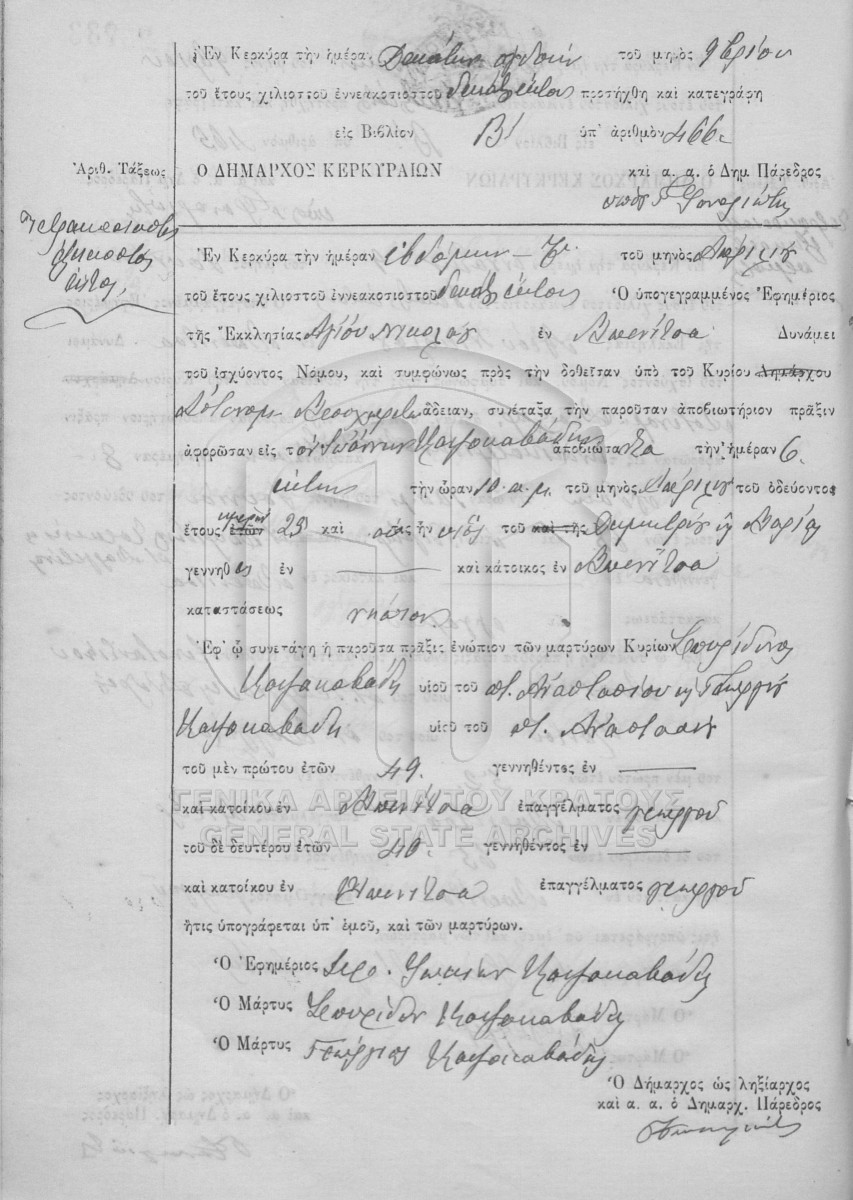 Ἐν Κερκύρᾳ τὴν ἡμέραν Δεκάτην ὀγδόην τοῦ μηνὸς 9βρίου
τοῦ ἔτους χιλιοστοῦ ἐννεακοσιοστοῦ δεκάτου ἕκτου προσήχθη καὶ κατεγράφη
εἰς Βιβλίον Β' ὑπ' ἀριθμὸν 466
Ἀριθ. Τάξεως Ο ΔΗΜΑΡΧΟΣ ΚΕΡΚΥΡΑΙΩΝ καὶ α. α. ὁ Δημ. Πάρεδρος
Τετρακοσιοστὸς
ἑξηκοστὸς
ἕκτος
Ἐν Κερκύρᾳ τὴν ἡμέραν ἑβδόμην – 7 τοῦ μηνὸς Ἀπριλίου
τοῦ ἔτους χιλιοστοῦ ἐννεακοσιοστοῦ δεκάτου ἕκτου Ὁ ὑπογεγραμμένος Ἐφημέριος
τῆς Ἐκκλησίας Ἁγίου Νικολάου ἐν Μπενίτσα Δυνάμει
τοῦ ἰσχύοντος Νόμου, καὶ συμφώνως πρὸς τὴν δοθεῖσαν ὑπὸ τοῦ Κυρίου Δημάρχου
Ἀστυνόμου ἄδειαν, συνέταξα τὴν παροῦσαν ἀποβιωτήριον πρᾶξιν
ἀφορῶσαν εἰς τὸν Ἰωάννην Καψοκαβάδην ἀποβιώσαντα τὴν ἡμέραν 6
ἕκτην τὴν ὥραν 10 π.μ. τοῦ μηνὸς Ἀπριλίου τοῦ ὁδεύοντος
ἔτους ἐτῶν ἡμερῶν 25 καὶ ἦν υἱὸς τοῦ καὶ τῆς Δημητρίου καὶ Μαρίας
γεννηθεὶς ἐν — καὶ κάτοικος ἐν Μπενίτσα
καταστάσεως νήπιον
Ἐφ' ᾧ συνετάγη ἡ παροῦσα πρᾶξις ἐνώπιον τῶν μαρτύρων Κυρίων Σπυρίδωνος
Καψοκαβάδη υἱοῦ τοῦ π. Ἀναστασίου καὶ Γεωργίου
Καψοκαβάδη υἱοῦ τοῦ π. Ἀναστασίου
τοῦ μὲν πρώτου ἐτῶν 49. γεννηθέντος ἐν —
καὶ κατοίκου ἐν Μπενίτσα ἐπαγγέλματος γεωργοῦ
τοῦ δὲ δευτέρου ἐτῶν 40. γεννηθέντος ἐν —
καὶ κατοίκου ἐν Μπενίτσα ἐπαγγέλματος γεωργοῦ
ἥτις ὑπογράφεται ὑπ' ἐμοῦ, καὶ τῶν μαρτύρων.
ΓΕΝΙΚΑ ΑΡΧΕΙΑ ΤΟΥ ΚΡΑΤΟΥΣ
GENERAL STATE ARCHIVES
Ὁ Ἐφημέριος Ἱερ. Ἰωάννης Καψοκαβάδης
Ὁ Μάρτυς Σπυρίδων Καψοκαβάδης
Ὁ Μάρτυς Γεώργιος Καψοκαβάδης
Ὁ Δήμαρχος ὡς ληξίαρχος
καὶ α. α. ὁ Δημαρχ. Πάρεδρος